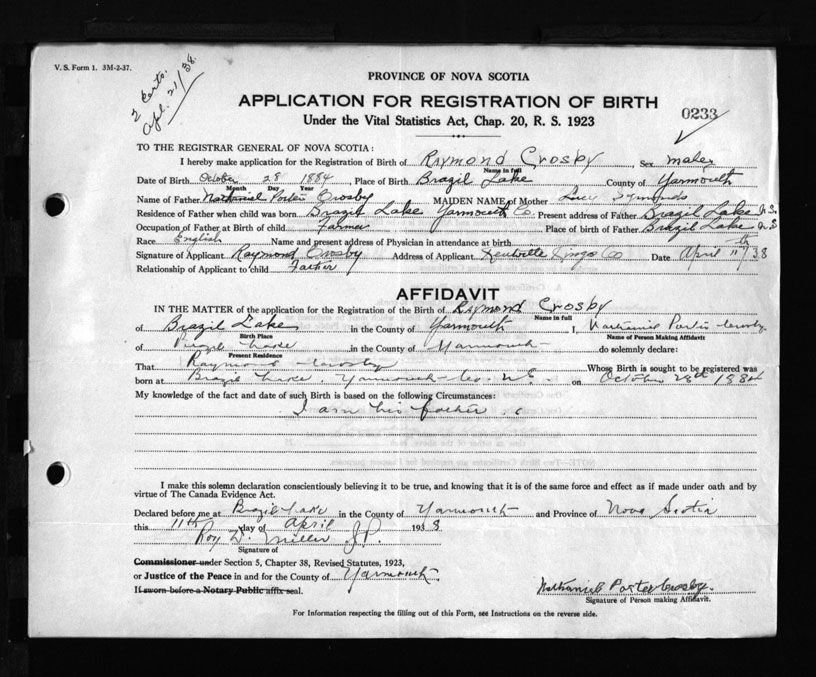 V. S. Form 1. 3M-2-37.
2 Certs.
Apl. 21/38.
PROVINCE OF NOVA SCOTIA
APPLICATION FOR REGISTRATION OF BIRTH
0233
Under the Vital Statistics Act, Chap. 20, R. S. 1923
TO THE REGISTRAR GENERAL OF NOVA SCOTIA:
I hereby make application for the Registration of Birth of Raymond Crosby, Sex male
Name in full
Date of Birth October 28 1884, Place of Birth Brazil Lake County of Yarmouth
Month Day Year
Name of Father Nathaniel Porter Crosby MAIDEN NAME of Mother Lucy Symonds
Residence of Father when child was born Brazil Lake Yarmouth Co. Present address of Father Brazil Lake N.S.
Occupation of Father at Birth of child Farmer Place of birth of Father Brazil Lake N.S
Race English Name and present address of Physician in attendance at birth
Signature of Applicant Raymond Crosby Address of Applicant Kentville Kings Co Date April 11th/38
Relationship of Applicant to child Father
AFFIDAVIT
IN THE MATTER of the application for the Registration of the Birth of Raymond Crosby
Name in full
of Brazil Lake in the County of Yarmouth I, Nathaniel Porter Crosby
Birth Place Name of Person Making Affidavit
of Brazil Lake in the County of Yarmouth do solemnly declare:
Present Residence
That Raymond Crosby Whose Birth is sought to be registered was
born at Brazil Lake, Yarmouth Co. N.S. on October 28th 1884
My knowledge of the fact and date of such Birth is based on the following Circumstances:
I am his father.
I make this solemn declaration conscientiously believing it to be true, and knowing that it is of the same force and effect as if made under oath and by
virtue of The Canada Evidence Act.
Declared before me at Brazil Lake in the County of Yarmouth and Province of Nova Scotia
this 11th day of April 1938
Roy D. Miller J.P.
Signature of
Commissioner under Section 5, Chapter 38, Revised Statutes, 1923,
or Justice of the Peace in and for the County of Yarmouth.
If sworn before a Notary Public affix seal.
Nathaniel Porter Crosby.
Signature of Person making Affidavit.
For Information respecting the filling out of this Form, see Instructions on the reverse side.